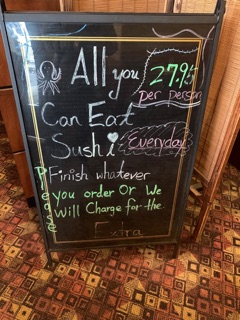 All you
27.95
per person
Can Eat
Sushi
Everyday
Please
Finish whatever
you order Or We
Will Charge for the
Extra